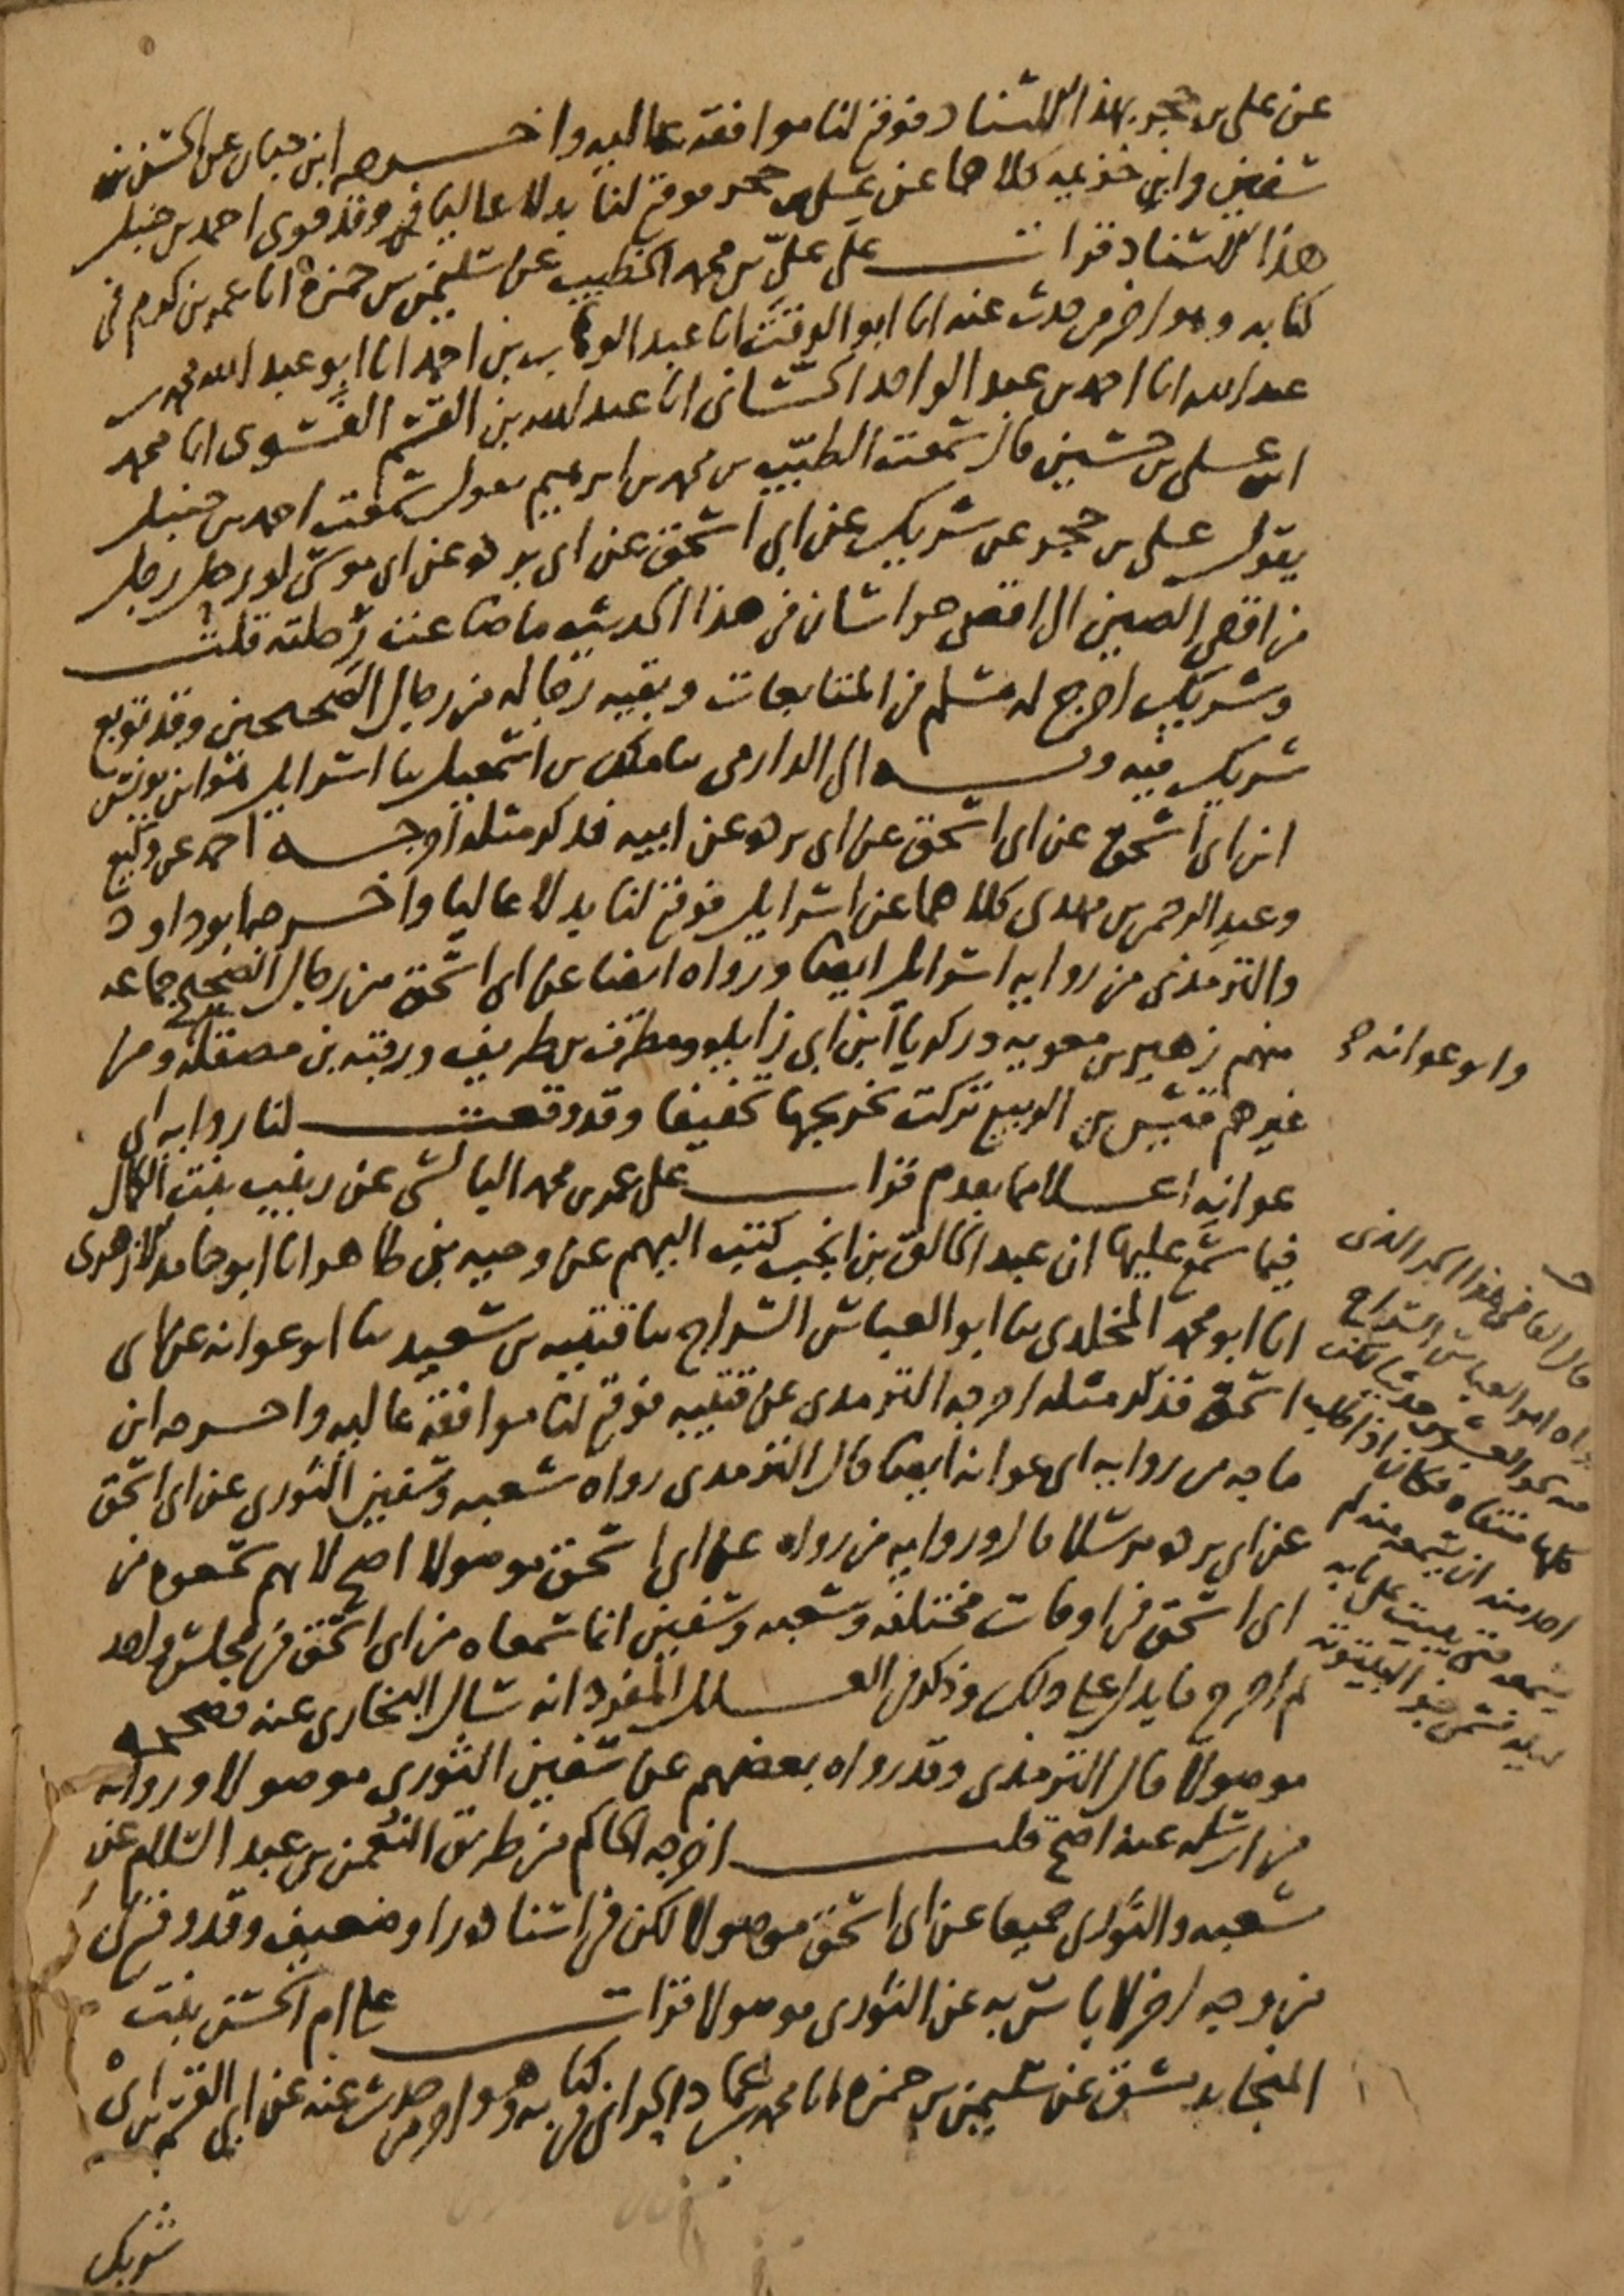 عن على بن حجر بهذا الاسناد فوقع لنا موافقة عالية واخرجه ابن حبان عن الحسن بن
سفين وابن خزيمه كلاهما عن على بن حجر فوقع لنا بدلا عاليا وقد قوى احمد بن حنبل
هذا الاسناد قرات على على بن محمد الخطيب عن سليمن بن حمزة انا عمر بن كرم فى
كتابه وهو اخر من حدث عنه انا ابو الوقت انا عبد الوهاب بن احمد انا ابو عبد الله محمد بن
عبد الله انا احمد بن عبد الواحد انا عبد الله بن القسم الفسوى انا محمد
ابن على بن حسين قال سمعت الطيب بن محمد بن ابرهيم يقول سمعت احمد بن حنبل
يقول على بن حجر عن شريك عن ابى اسحق عن ابى برده عن ابى موسى لو رحل رجل
من اقصى الصين الى اقصى خراسان فى هذا الحديث ما ضاعت رحلته قلت
وشريك اخرج له مسلم فى المتابعات وبقيه رجاله من رجال الصحيحين وقد توبع
شريك فيه وبه الى الدارمى ثنا ملك بن اسمعيل ثنا اسرايل هو ابن يونس
ابن ابى اسحق عن ابى اسحق عن ابى برده عن ابيه فذكر مثله اخرجه احمد عن وكيع
وعبد الرحمن بن مهدى كلاهما عن اسرايل فوقع لنا بدلا عاليا واخرجه ابو داود
والترمذى من روايه اسرايل ايضا ورواه ايضا عن ابى اسحق من رجال الصحيح جماعه
منهم زهير بن معويه وزكريا ابن ابى زايده ومطرف بن طريف ورقبه بن مصقله ومن
وابو عوانه صح
غيرهم قيس بن الربيع تركت تخريجها تخفيفا وقد وقعت لنا روايه ابى
عوانه اعلا مما تقدم قرات على عمر بن محمد البالسى عن زينب بنت الكمال
فيما سمع عليها ان عبد الخالق بن انجب كتب اليهم عن وجيه بن طاهر انا ابو حامد الازهرى
انا ابو محمد المخلدى ثنا ابو العباس السراج ثنا قتيبه بن سعيد ثنا ابو عوانه عن ابى
اسحق فذكر مثله اخرجه الترمذى عن قتيبه فوقع لنا موافقة عاليه واخرجه ابن
ماجه من روايه ابى عوانه ايضا قال الترمذى رواه شعبه وسفين الثورى عن ابى اسحق
عن ابى برده مرسلا قال وروايه من رواه عن ابى اسحق موصولا اصح لانهم سمعوه من
ابى اسحق فى اوقات مختلفه وشعبه وسفين انما سمعاه من ابى اسحق فى مجلس واحد
ثم اخرج ما يدل على ذلك وذكر فى العلل المفرد انه سال البخارى عنه فصححه
موصولا قال الترمذى وقد رواه بعضهم عن سفين الثورى موصولا وروايه
من ارسله عنه اصح قلت اخرجه الحاكم من طريق النعمن بن عبد السلام عن
شعبه والثورى جميعا عن ابى اسحق موصولا لكن فى اسناده راو ضعيف وقد وقع لى
من وجه اخر لا باس به عن الثورى موصولا قرات على ام الحسن بنت
المنجا بدمشق عن سليمن بن حمزه انا محمد بن عماد الحرانى فى كتابه وهو اخر من حدث عنه عن ابى القسم بن ابى
شريك
قال القاضى هذا الخبر الذى
رواه ابو العباس السراج